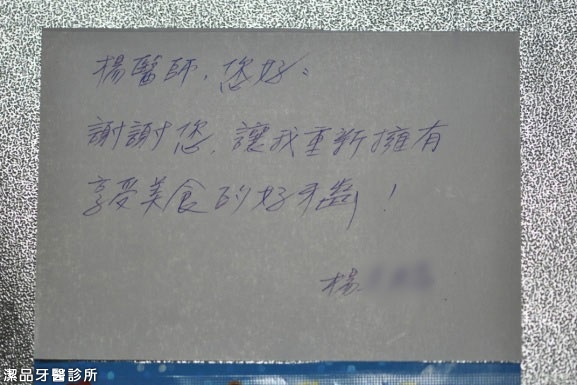 楊醫師，您好：
謝謝您，讓我重新擁有
享受美食的好牙齒！
楊
潔品牙醫診所